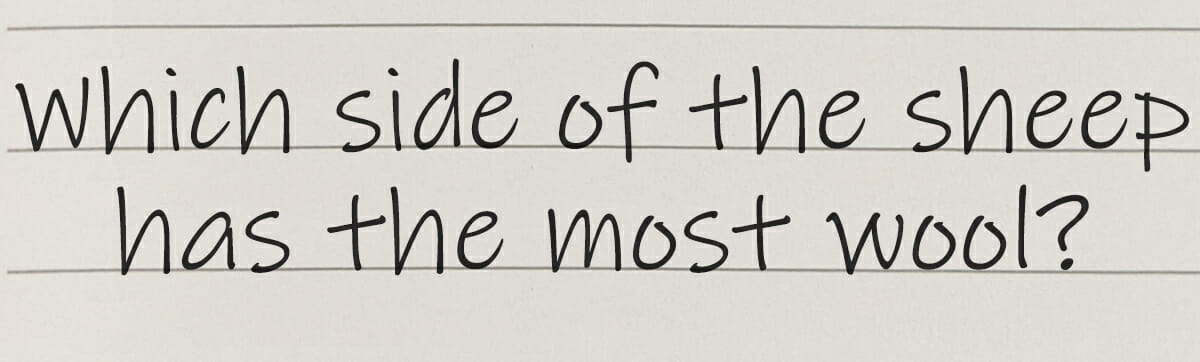 Which side of the sheep
has the most wool?